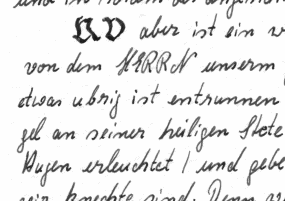 und
NU aber ist ein
von dem HERRN unserm
etwas ubrig ist entrunnen
gel an seiner heiligen Stete
Augen erleuchtet / und gebe
wir knechte sind. Denn